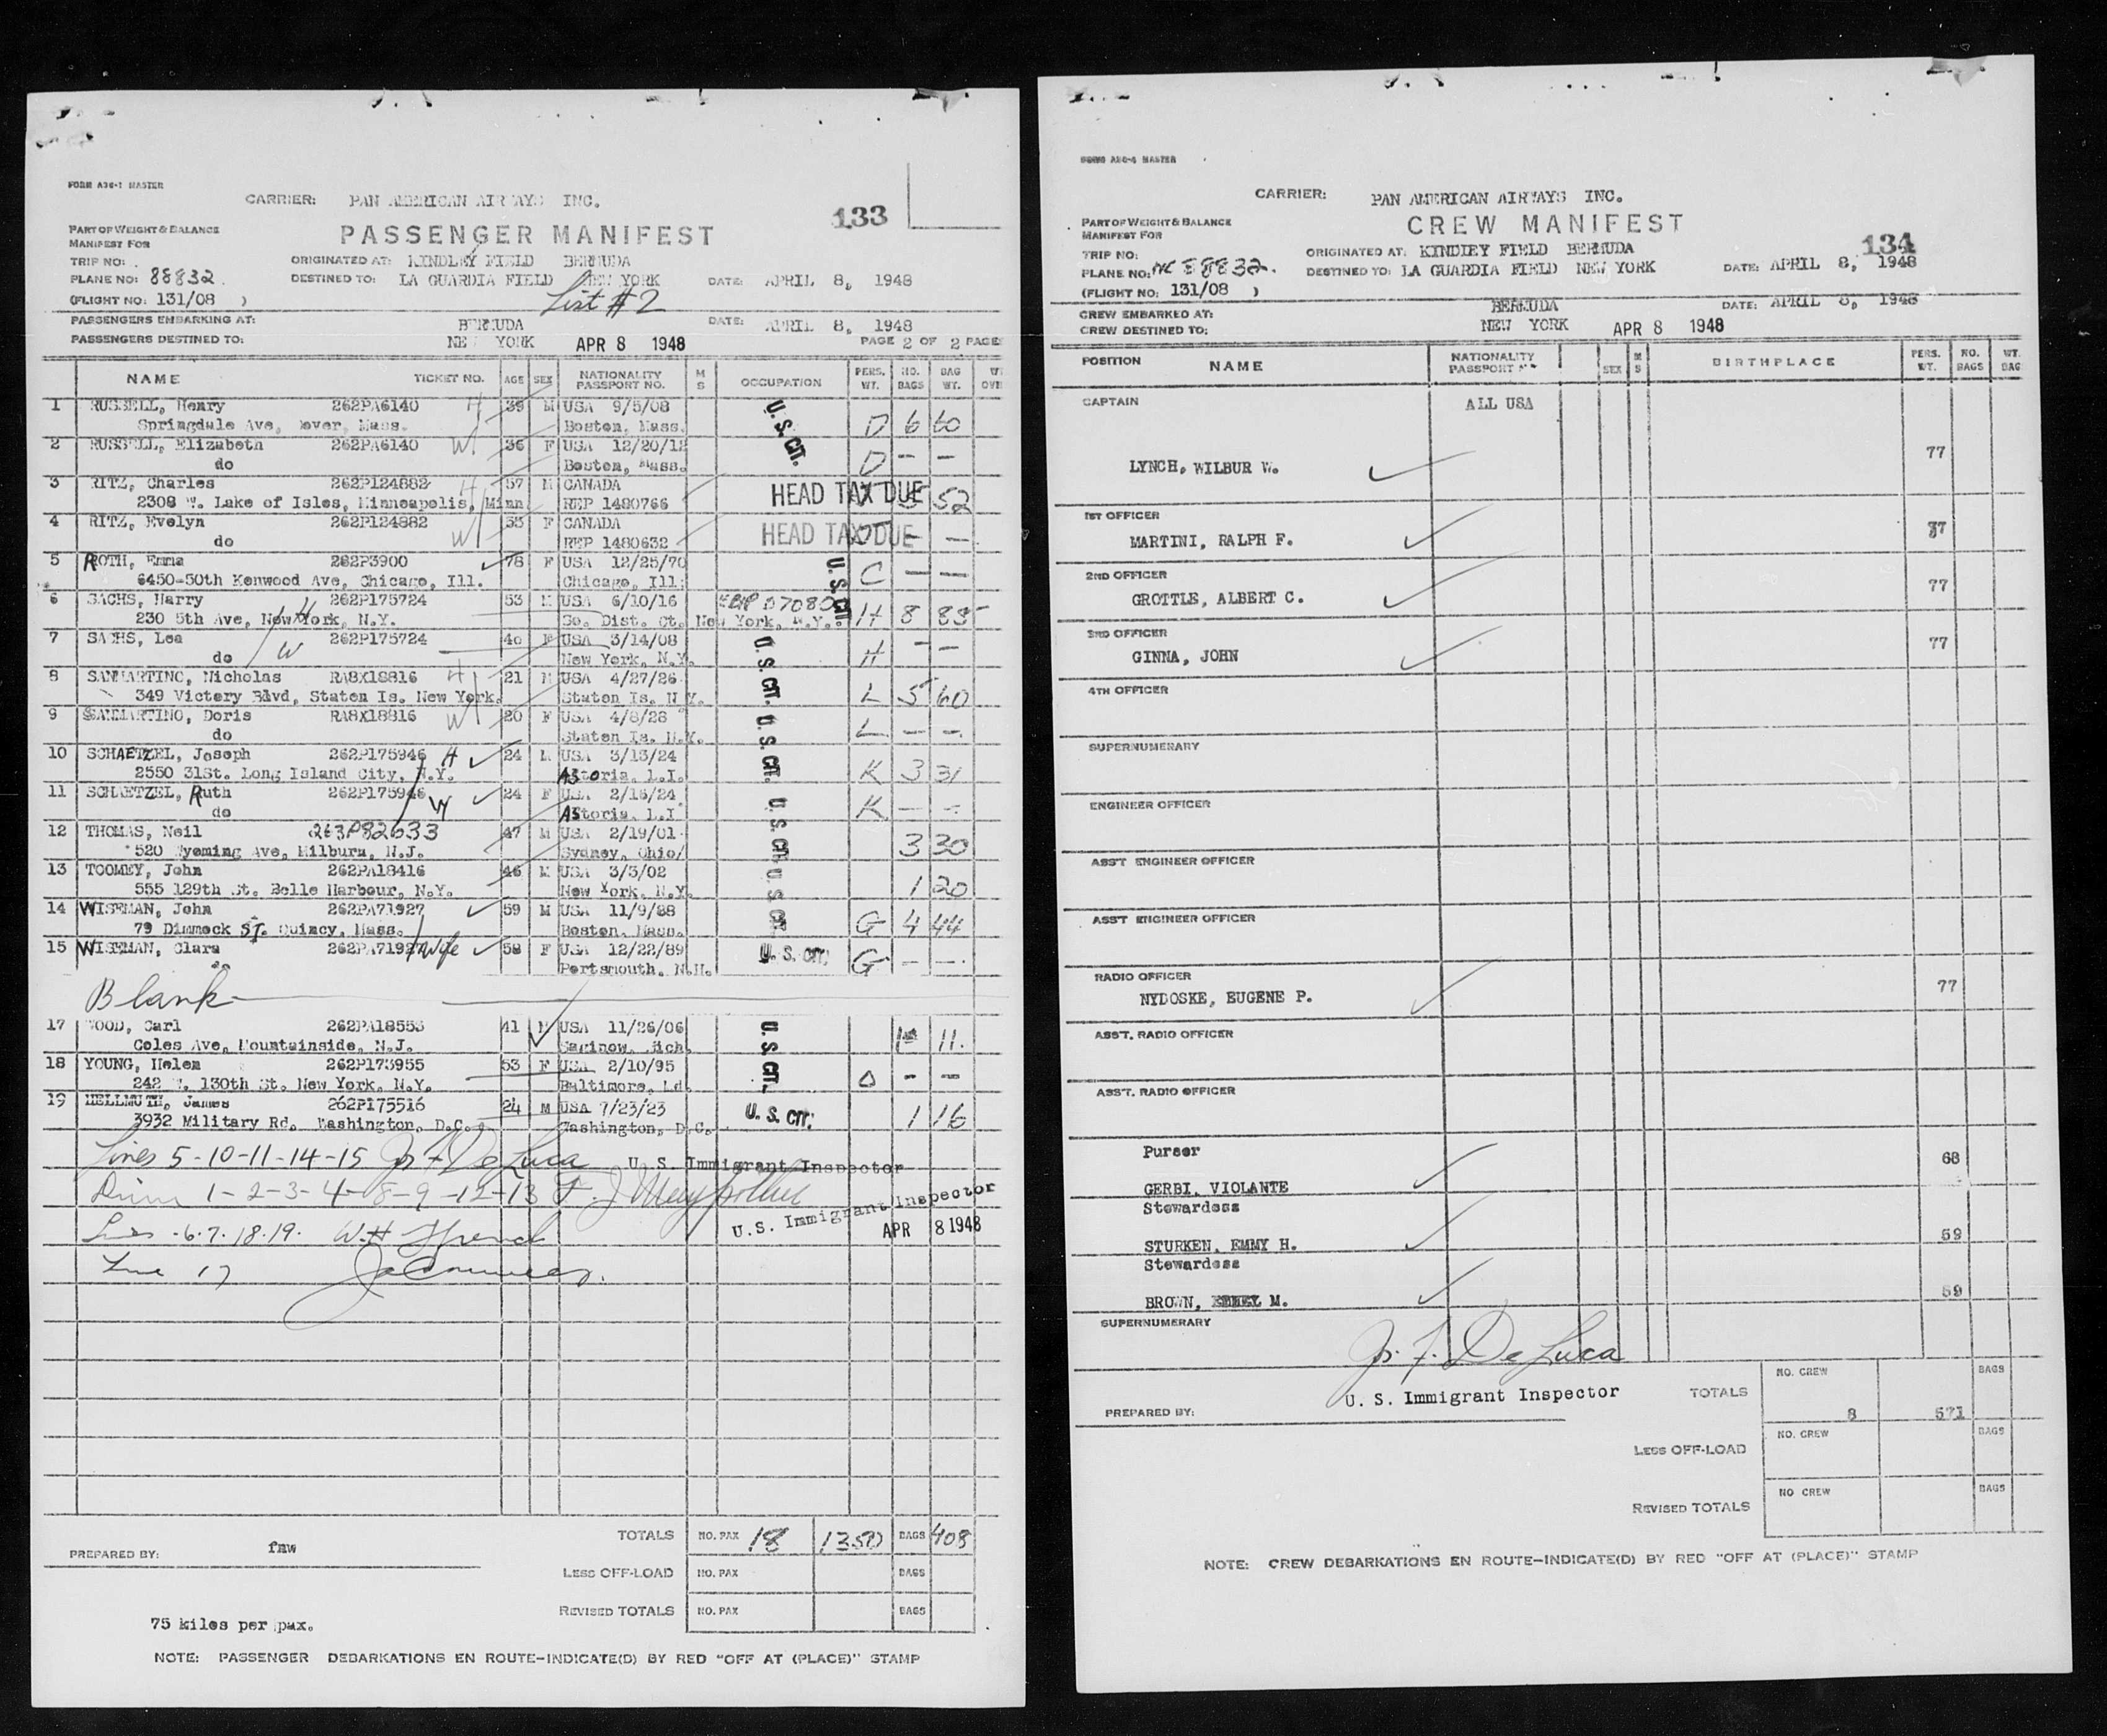 FORM ABC-1 MASTER
CARRIER: PAN AMERICAN AIRWAYS INC.
133
PASSENGER MANIFEST
PART OF WEIGHT & BALANCE
MANIFEST FOR
TRIP NO: ORIGINATED AT: KINDLEY FIELD BERMUDA
PLANE NO: 88832 DESTINED TO: LA GUARDIA FIELD NEW YORK DATE: APRIL 8, 1948
(FLIGHT NO: 131/08 ) List #2
PASSENGERS EMBARKING AT: BERMUDA DATE: APRIL 8, 1948
PASSENGERS DESTINED TO: NEW YORK APR 8 1948 PAGE 2 OF 2 PAGES
NAME TICKET NO. AGE SEX NATIONALITY PASSPORT NO. M S OCCUPATION PERS. WT. NO. BAGS BAG WT.
1 RUSSELL, Henry 262PA6140 H 39 M USA 9/5/08 U.S. CIT.
Springdale Ave, Dover, Mass. Boston, Mass. D 6 60
2 RUSSELL, Elizabeth 262PA6140 W 36 F USA 12/20/12
do Boston, Mass. D - -
3 RITZ, Charles 262P124882 H 57 M CANADA HEAD TAX DUE
2308 W. Lake of Isles, Minneapolis, Minn REP 1480766 52
4 RITZ, Evelyn 262P124882 W 55 F CANADA HEAD TAX DUE
do REP 1480632 - -
5 ROTH, Emma 262P3900 78 F USA 12/25/70 U.S. CIT.
6450-50th Kenwood Ave, Chicago, Ill. Chicago, Ill. C - -
6 SACHS, Harry 262P175724 53 M USA 6/10/16
230 5th Ave, New York, N.Y. H So. Dist. Ct. New York, N.Y. H 8 85
7 SACHS, Lea 262P175724 40 F USA 3/14/08 U.S. CIT.
do W New York, N.Y. H - -
8 SANMARTINO, Nicholas RA8X18816 H 21 M USA 4/27/26
349 Victory Blvd, Staten Is. New York. Staten Is. N.Y. L 5 60
9 SANMARTINO, Doris RA8X18816 W 20 F USA 4/8/28 U.S. CIT.
do Staten Is. N.Y. L - -
10 SCHAETZEL, Joseph 262P175946 H 24 M USA 3/13/24
2550 31St. Long Island City, N.Y. Astoria, L.I. K 3 31
11 SCHAETZEL, Ruth 262P175946 W 24 F USA 2/16/24 U.S. CIT.
do Astoria, L.I. K - -
12 THOMAS, Neil 263P82633 47 M USA 2/19/01
520 Wyoming Ave, Milburn, N.J. Sydney, Ohio/ 3 30
13 TOOMEY, John 262PA18416 46 M USA 3/3/02 U.S. CIT.
555 129th St. Belle Harbour, N.Y. New York, N.Y. 1 20
14 WISEMAN, John 262PA71927 59 M USA 11/9/88
79 Dimmock ST. Quincy, Mass. Boston, Mass. G 4 44
15 WISEMAN, Clara 262PA71927 Wife 58 F USA 12/22/89 U.S. CIT.
do Portsmouth, N.H. G - -
Blank
17 WOOD, Carl 262PA18553 41 M USA 11/26/06 U.S. CIT.
Coles Ave, Mountainside, N.J. Saginow, Mich. 1 11.
18 YOUNG, Helen 262P173955 53 F USA 2/10/95
242 W. 130th St. New York, N.Y. Baltimore, Md. - -
19 HELLMUTH, James 262P175516 24 M USA 7/23/23 U.S. CIT.
3932 Military Rd. Washington, D.C. Washington, D.C. 1 16
Lines 5-10-11-14-15 Js. F. De Luca U. S. Immigrant Inspector
1-2-3-4-8-9-12-13 U.S. Immigrant Inspector
6.7.18.19. W.H. APR 8 1948
Line 17
TOTALS NO. PAX 18 1350 BAGS 408
PREPARED BY: fmw
LESS OFF-LOAD NO. PAX BAGS
REVISED TOTALS NO. PAX BAGS
75 kilos per pax.
NOTE: PASSENGER DEBARKATIONS EN ROUTE-INDICATE(D) BY RED "OFF AT (PLACE)" STAMP
FORM ABC-4 MASTER
CARRIER: PAN AMERICAN AIRWAYS INC.
CREW MANIFEST
134
PART OF WEIGHT & BALANCE
MANIFEST FOR
TRIP NO: ORIGINATED AT: KINDLEY FIELD BERMUDA
PLANE NO: NC 88832. DESTINED TO: LA GUARDIA FIELD NEW YORK DATE: APRIL 8, 1948
(FLIGHT NO: 131/08 )
CREW EMBARKED AT: BERMUDA DATE: APRIL 8, 1948
CREW DESTINED TO: NEW YORK APR 8 1948
POSITION NAME NATIONALITY PASSPORT SEX M S BIRTHPLACE PERS. WT. NO. BAGS WT. BAG
CAPTAIN ALL USA
LYNCH, WILBUR W. 77
1ST OFFICER
MARTINI, RALPH F. 77
2ND OFFICER
GROTTLE, ALBERT C. 77
3RD OFFICER
GINNA, JOHN 77
4TH OFFICER
SUPERNUMERARY
ENGINEER OFFICER
ASS'T ENGINEER OFFICER
ASS'T ENGINEER OFFICER
RADIO OFFICER
NYDOSKE, EUGENE P. 77
ASST. RADIO OFFICER
ASST. RADIO OFFICER
Purser
GERBI, VIOLANTE 68
Stewardess
STURKEN, EMMY H. 59
Stewardess
BROWN, M. 59
SUPERNUMERARY
Js. F. De Luca
U. S. Immigrant Inspector
PREPARED BY:
TOTALS NO. CREW 8 571 BAGS
LESS OFF-LOAD NO. CREW BAGS
REVISED TOTALS NO CREW BAGS
NOTE: CREW DEBARKATIONS EN ROUTE-INDICATE(D) BY RED "OFF AT (PLACE)" STAMP